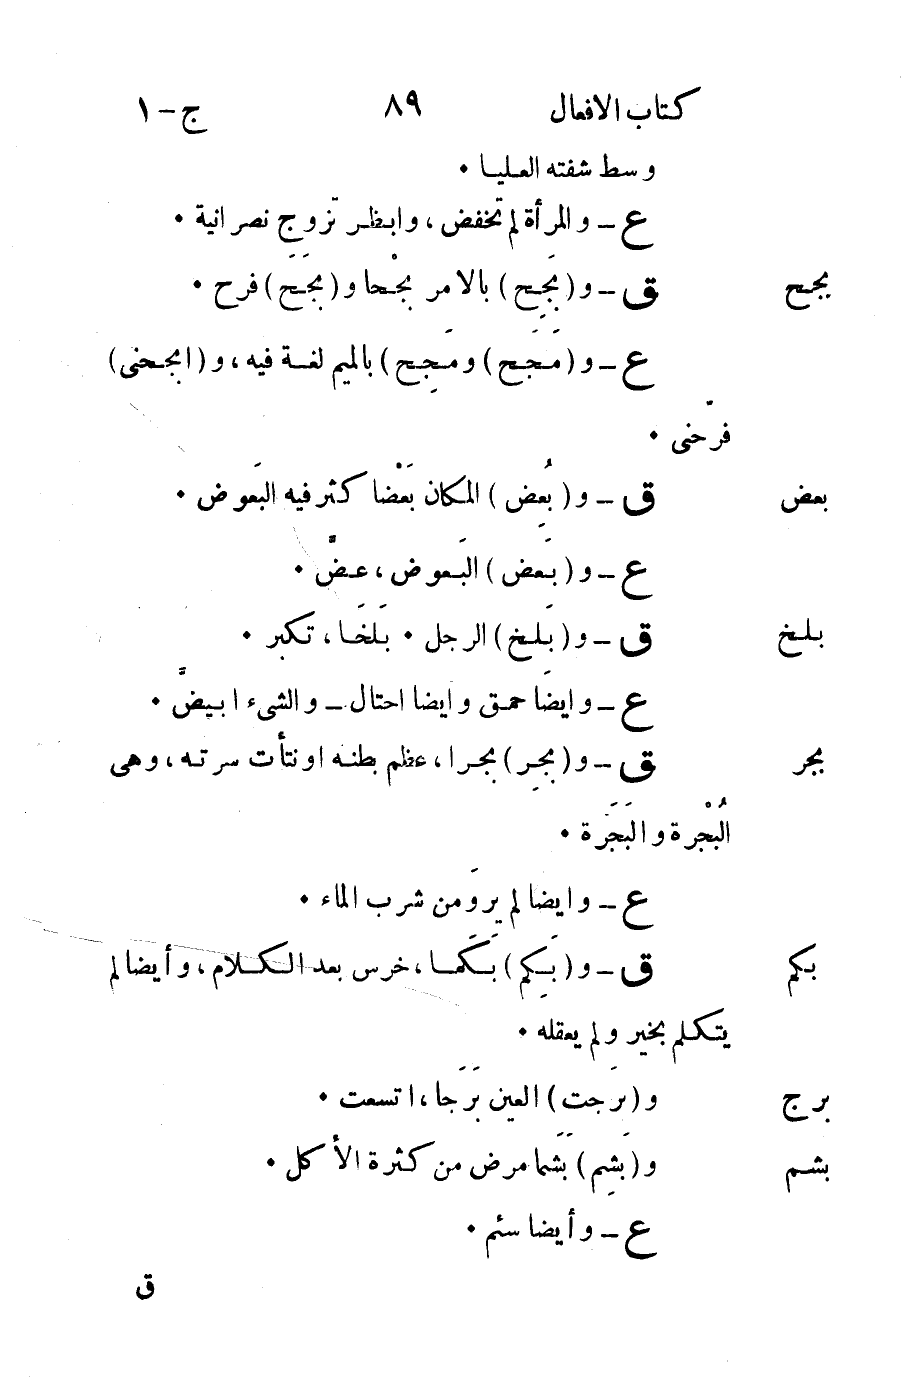 كتاب الافعال ٨٩ ج-١
وسط شفته العليا ٠
ع ـ والمرأة لم تخفض ، وابظر تزوج نصرانية ٠
بجح ق ـ و (بَجِح) بالامر بجْحا و (بَجَح) فرح ٠
ع ـ و (مَجَح) ومَجِح) بالميم لغة فيه ، و (ابجحنى)
فرّحنى ٠
بعض ق ـ و (بُعِض) المكان بَعْضا كثر فيه البَعوض ٠
ع ـ و (بَعض) البَعوض ، عضّ ٠
بلخ ق ـ و (بَلِخ) الرجل ٠ بَلَخَا ، تكبر ٠
ع ـ وايضا حمق وايضا احتال ـ والشىء ابيضّ ٠
بجر ق ـ و (بَجِر) بجرا ، عظم بطنه او نتأت سرته ، وهى
البُجْرة والبَجَرة ٠
ع ـ وايضا لم يروَ من شرب الماء ٠
بكم ق ـ و (بَكِم) بَكَما ، خرس بعد الكلام ، وأيضا لم
يتكلم بخير ولم يعقله ٠
برج و (برَجت) العين بَرَجا ، اتسعت ٠
بشم و (بَشِم) بَشَما مرض من كثرة الأكل ٠
ع ـ وأيضا سئم ٠
ق